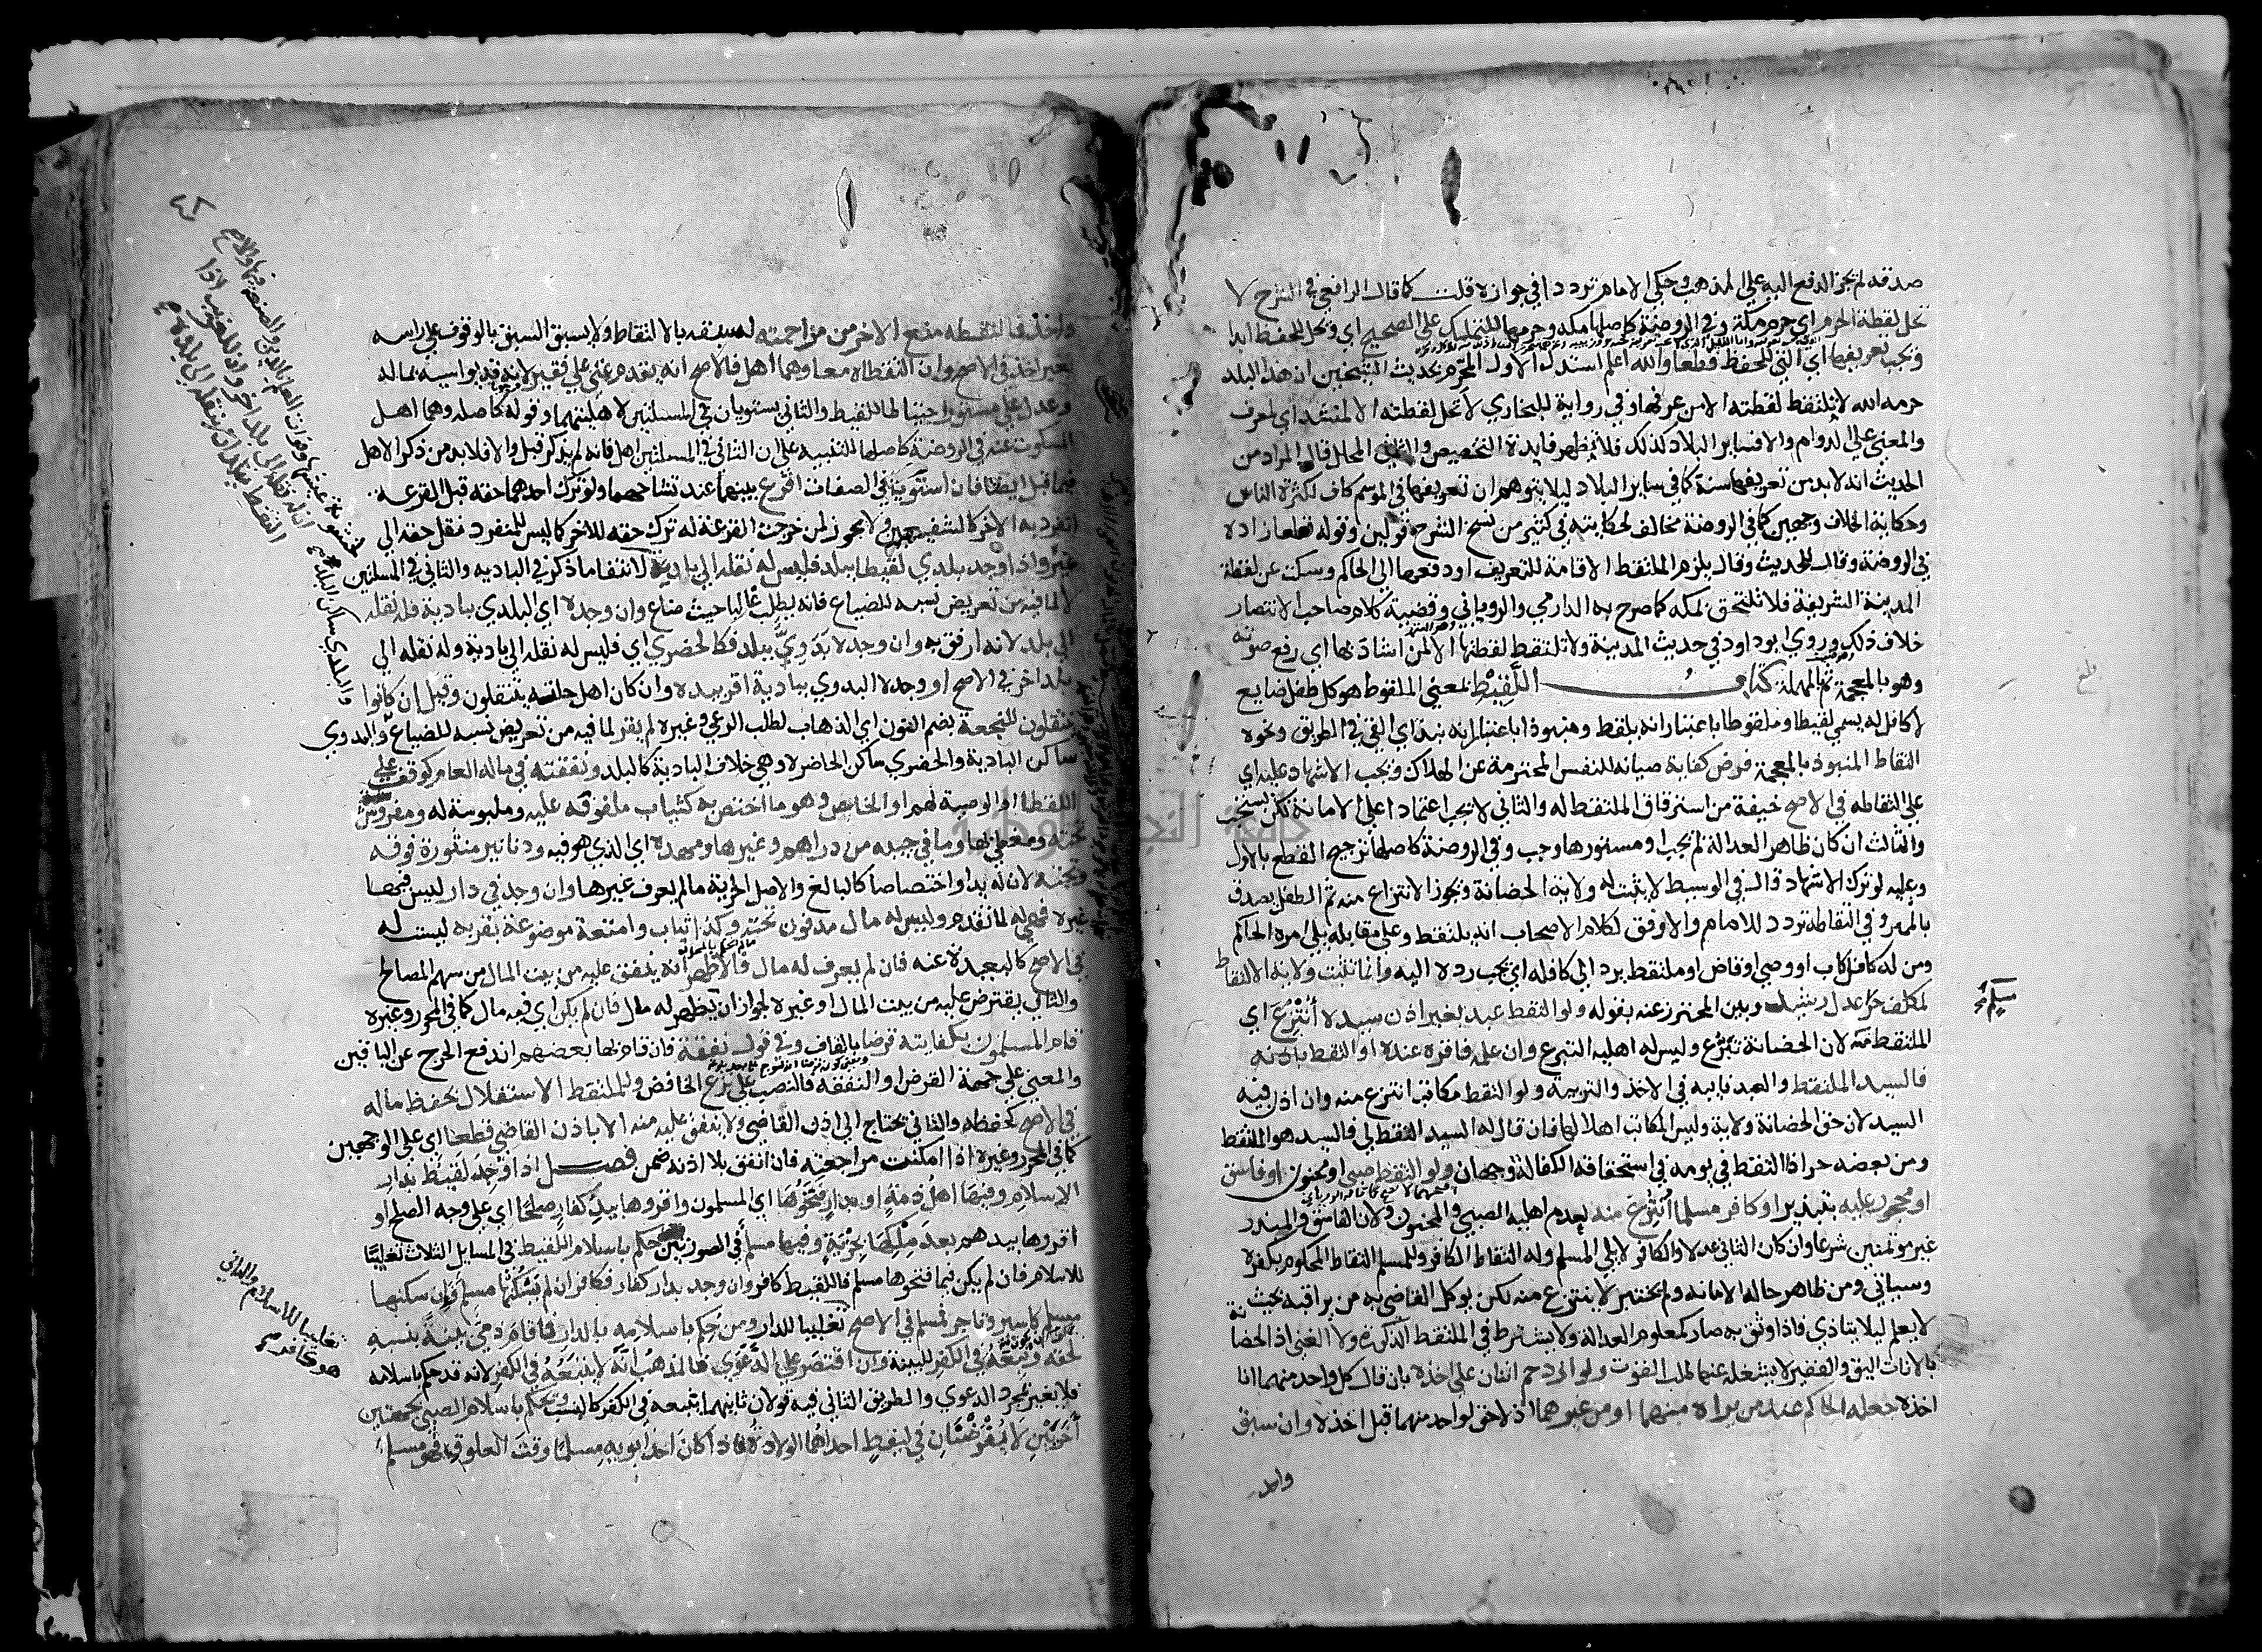 صدقه لم يجز الدفع اليه علي المذهب وحكي الامام ترددا في جوازه قلت كما قال الرافعي في الشرح لا
تحل لقطة الحرم اي حرم مكة وفي الروضة كاصلها مكة وحرمها للتمليك علي الصحيح اي وتحل للحفظ ابدا
ويجب تعريفها اي التي للحفظ قطعا والله اعلم استدل الاول المحرم بحديث الشيخين ان هذا البلد
حرمه الله لا يلتقط لقطته الا من عرفها وفي رواية للبخاري لا تحل لقطته الا لمنشد اي لمعرف
والمعني علي الدوام والا فساير البلاد كذلك فلا تظهر فايدة التخصيص والثاني المحلل قال المراد من
الحديث انه لا بد من تعريفها سنة كما في ساير البلاد ليلا يتوهم ان تعريفها في الموسم كاف لكثرة الناس
وحكاية الخلاف وجهين كما في الروضة مخالف لحكايته في كثير من نسخ الشرح قولين وقوله قطعا زاده
في الروضة وقال للحديث وقال يلزم الملتقط الاقامة للتعريف او دفعها الي الحاكم وسكت عن لقطة
المدينة الشريفة فلا تلتحق بمكه كما صرح به الدارمي والروياني وقضية كلام صاحب الانتصار
خلاف ذلك وروي ابو داود في حديث المدينة ولا تلتقط لقطتها الا لمن اشاد بها اي رفع صوته
وهو بالمعجمة ثم المهملة كتاب اللقيط بمعني الملقوط هو كل طفل ضايع
لا كافل له يسمي لقيطا وملقوطا باعتبار انه يلقط ومنبوذا باعتبار انه نبذ اي القي في الطريق ونحوه
التقاط المنبوذ بالمعجمة فرض كفاية صيانة للنفس المحترمة عن الهلاك ويجب الاشهاد عليه اي
علي التقاطه في الاصح خيفة من استرقاق الملتقط له والثاني لا يجب اعتمادا علي الامانة لكن يستحب
والثالث ان كان ظاهر العدالة لم يجب او مستورها وجب وفي الروضة كاصلها ترجيح القطع بالاول
وعليه لو ترك الاشهاد قال في الوسيط لا يثبت له ولاية الحضانة ويجوز الانتزاع منه ثم الطفل يصدق
بالمميز وفي التقاطه تردد للامام والاوفق لكلام الاصحاب انه يلتقط وعلي مقابله يلي امره الحاكم
ومن له كافل كاب او وصي او قاض او ملتقط يرد الي كافله اي يجب رده اليه وانما تثبت ولاية الالتقاط
لمكلف حر عدل رشيد وبين المحترز عنه بقوله ولو التقط عبد بغير اذن سيده انتزع اي
الملتقط منه لان الحضانة تبرع وليس له اهلية التبرع وان علم فاقره عنده او التقط باذنه
فالسيد الملتقط والعبد نايبه في الاخذ والتربية ولو التقط مكاتب انتزع منه وان اذن فيه
السيد لان حق الحضانة ولاية وليس المكاتب اهلا لها فان قال له السيد التقط لي فالسيد هو الملتقط
ومن بعضه حر اذا التقط في يومه في استحقاقه الكفالة وجهان ولو التقط صبي او مجنون او فاسق
او محجور عليه بتبذير او كافر مسلما انتزع منه لعدم اهلية الصبي والمجنون ولان الفاسق والمبذر
غير موتمنين شرعا وان كان الثاني عدلا والكافر لا يلي المسلم وله التقاط الكافر وللمسلم التقاط المحكوم بكفره
وسياتي ومن ظاهر حاله الامانة ولم يختبر لا ينتزع منه لكن يوكل القاضي به من يراقبه بحيث
لا يعلم ليلا يتاذي فاذا وثق به صار كمعلوم العدالة ولا يشترط في الملتقط الذكورة ولا الغني اذ الحضانة
بالاناث اليق والفقير لا يشغله عنها طلب القوت ولو ازدحم اثنان علي اخذه بان قال كل واحد منهما انا
اخذه جعله الحاكم عند من يراه منهما او من غيرهما اذ لا حق لواحد منهما قبل اخذه وان سبق
واحد
واحد فالتقطه منع الاخر من مزاحمته لسبقه بالالتقاط ولا يسبق السبق بالوقوف علي راسه
بغير اخذ في الاصح وان التقطاه معا وهما اهل فالاصح انه يقدم غني علي فقير لانه قد يواسيه بماله
وعدل علي مستور احتياطا للقيط والثاني يستويان في المسلتين لاهليتهما وقوله كاصله وهما اهل
المسكوت عنه في الروضة كاصلها للتنبيه علي ان الثاني في المسلتين اهل فانه لم يذكر قبل والا فلا بد من ذكر الاهل
فيما قبل ايضا فان استويا في الصفات اقرع بينهما عند تشاحهما ولو ترك احدهما حقه قبل القرعة
انفرد به الاخر كالشفيعين ولا يجوز لمن خرجت القرعة له ترك حقه للاخر كما ليس للمنفرد نقل حقه الي
غيره واذا وجد بلدي لقيطا ببلد فليس له نقله الي بادية لانتفا ما ذكر في الباديه والثاني في المسلتين
لما فيه من تعريض نسبه للضياع فانه يطلب غالبا حيث ضاع وان وجده اي البلدي ببادية فله نقله
الي بلد لانه ارفق به وان وجده بدوي ببلد فكالحضري اي فليس له نقله الي بادية وله نقله الي
بلد اخر في الاصح او وجده البدوي ببادية اقر بيده وان كان اهل حلته ينتقلون وقيل ان كانوا
ينتقلون للنجعة بضم النون اي الذهاب لطلب الرعي وغيره لم يقر لما فيه من تعريض نسبه للضياع والبدوي
ساكن البادية والحضري ساكن الحاضرة وهي خلاف البادية كالبلد ونفقته في ماله العام كوقف علي
اللقطا او الوصية لهم او الخاص وهو ما اختص به كثياب ملفوفة عليه وملبوسة له ومفروشة
تحته ومغطي بها وما في جيبه من دراهم وغيرها ومهده اي الذي هو فيه ودنانير منثورة فوقه
وتحته لان له يدا واختصاصا كالبالغ والاصل الحرية ما لم يعرف غيرها وان وجد في دار ليس فيها
غيره فهي له لما تقدم وليس له مال مدفون تحته وكذا ثياب وامتعة موضوعة بقربه ليست له
في الاصح كالبعيدة عنه فان لم يعرف له مال فالاظهر انه ينفق عليه من بيت المال من سهم المصالح
والثاني يقترض عليه من بيت المال او غيره لجواز ان يظهر له مال فان لم يكن اي فيه مال كما في المحرر وغيره
قام المسلمون بكفايته قرضا بالقاف وفي قول نفقة فان قام بها بعضهم اندفع الحرج عن الباقين
والمعني علي جهة القرض او النفقة فالنصب علي نزع الخافض وللملتقط الاستقلال بحفظ ماله
في الاصح كحفظه والثاني يحتاج الي اذن القاضي ولا ينفق عليه منه الا باذن القاضي قطعا اي علي الوجهين
كما في المحرر وغيره اذا امكنت مراجعته فان انفق بلا اذنه ضمن فصل اذا وجد لقيط بدار
الاسلام وفيها اهل ذمة او بدار فتحوها اي المسلمون واقروها بيد كفار صلحا اي علي وجه الصلح او
اقروها بيدهم بعد ملكها بجزية وفيها مسلم في الصورتين حكم باسلام اللقيط في المسايل الثلاث تغليبا
للاسلام فان لم يكن فيما فتحوها مسلم فاللقيط كافر وان وجد بدار كفار فكافر ان لم يسكنها مسلم فان سكنها
مسلم كاسير وتاجر فمسلم في الاصح تغليبا للدار ومن حكم باسلامه بالدار فاقام ذمي بينة بنسبه
لحقه وتبعه في الكفر للبينة وان اقتصر علي الدعوي فالمذهب انه لا يتبعه في الكفر لانه قد حكم باسلامه
فلا يغير بمجرد الدعوي والطريق الثاني فيه قولان ثانيهما يتبعه في الكفر كالنسب ويحكم باسلام الصبي بجهتين
اخريين لا يفرضان في لقيط احداهما الولادة فاذا كان احد ابويه مسلما وقت العلوق فهو مسلم
تغليبا للاسلام والثاني
هو كافر